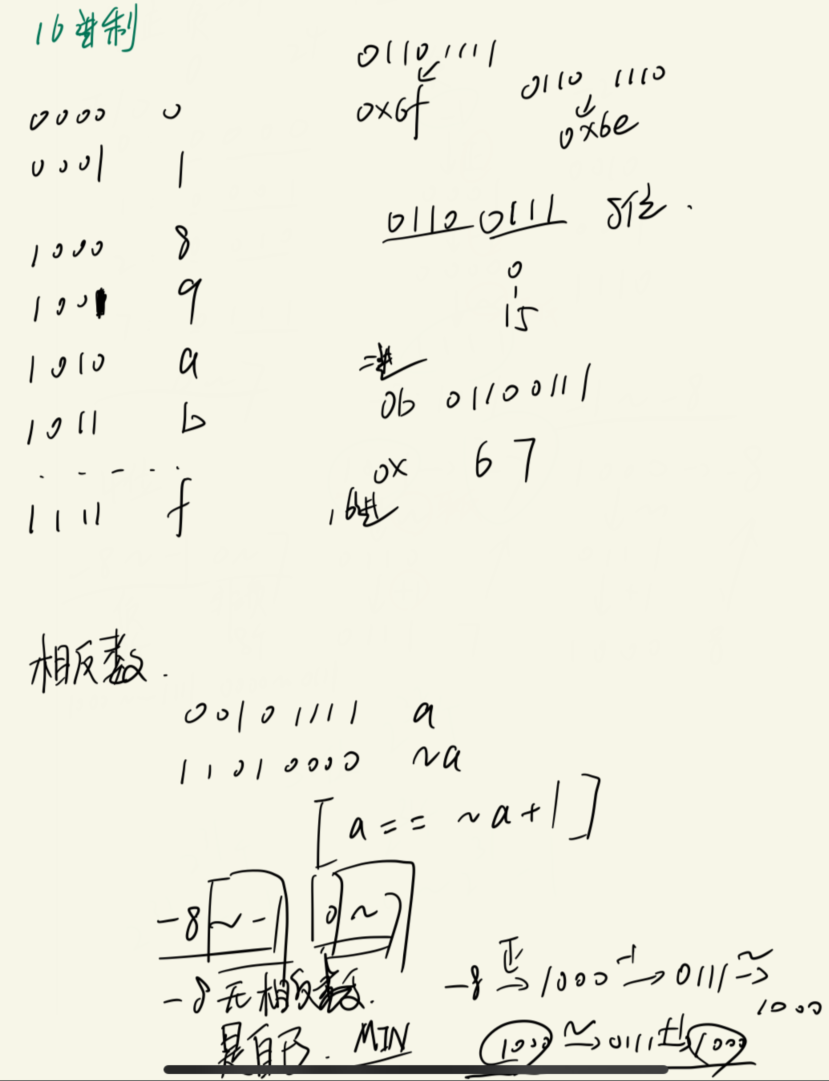 16进制
0000 0
0001 1
1000 8
1001 9
1010 a
1011 b
......
1111 f
0110 1111
0x6f
0110 1110
0x6e
0110 0111 8位.
0
15
二进
0b 01100111
0x 6 7
16进
相反数.
00101111 a
11010000 ~a
[a == ~a+1]
-8 ~ -1 0 ~ 7
-8无相反数.
是自己. MIN
-8 → 1000 -1 → 0111 ~→
1000
1000 ~→ 0111 +1→ 1000